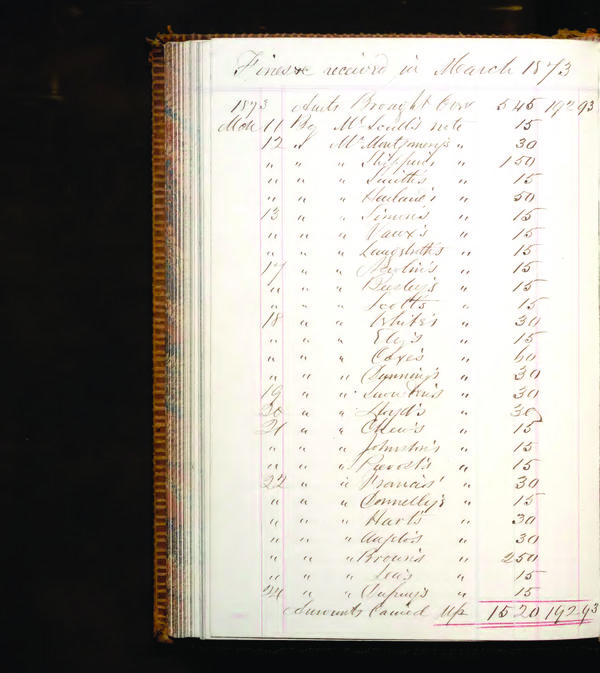 Fines &c receiv'd in March 1873
1873 Amts Brought Over 5 45 192 93
Mch 11 By Mr Scull's note 15
12 " Mr Montgomery's " 30
" " " Shippen's " 1 50
" " " Smith's " 15
" " " Harlane's " 50
13 " " Simons " 15
" " " Vaux's " 15
" " " Langstroth's " 15
17 " " 's " 15
" " " 's " 15
" " " Scott's " 15
18 " " White's " 30
" " " Ely's " 15
" " " Coxe's " 60
" " " 's " 30
19 " " Snowden's " 30
20 " " Lloyd's " 30
21 " " Chew's " 15
" " " Johnston's " 15
" " " Prevost's " 15
22 " " Francis' " 30
" " " Donnelly's " 15
" " " Hart's " 30
" " " " 30
" " " Brown's " 2 50
" " " Lea's " 15
24 " " " 15
Amounts Carried Up 15 20 192 93